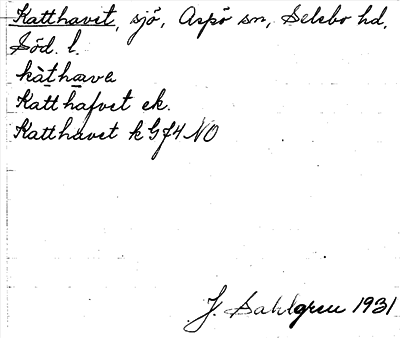 Katthavet, sjö, Aspö sn, Selebo hd,
Söd. l.
kàthave
Katthafvet ek.
Katthavet k Gf4 NO
J. Dahlgren 1931